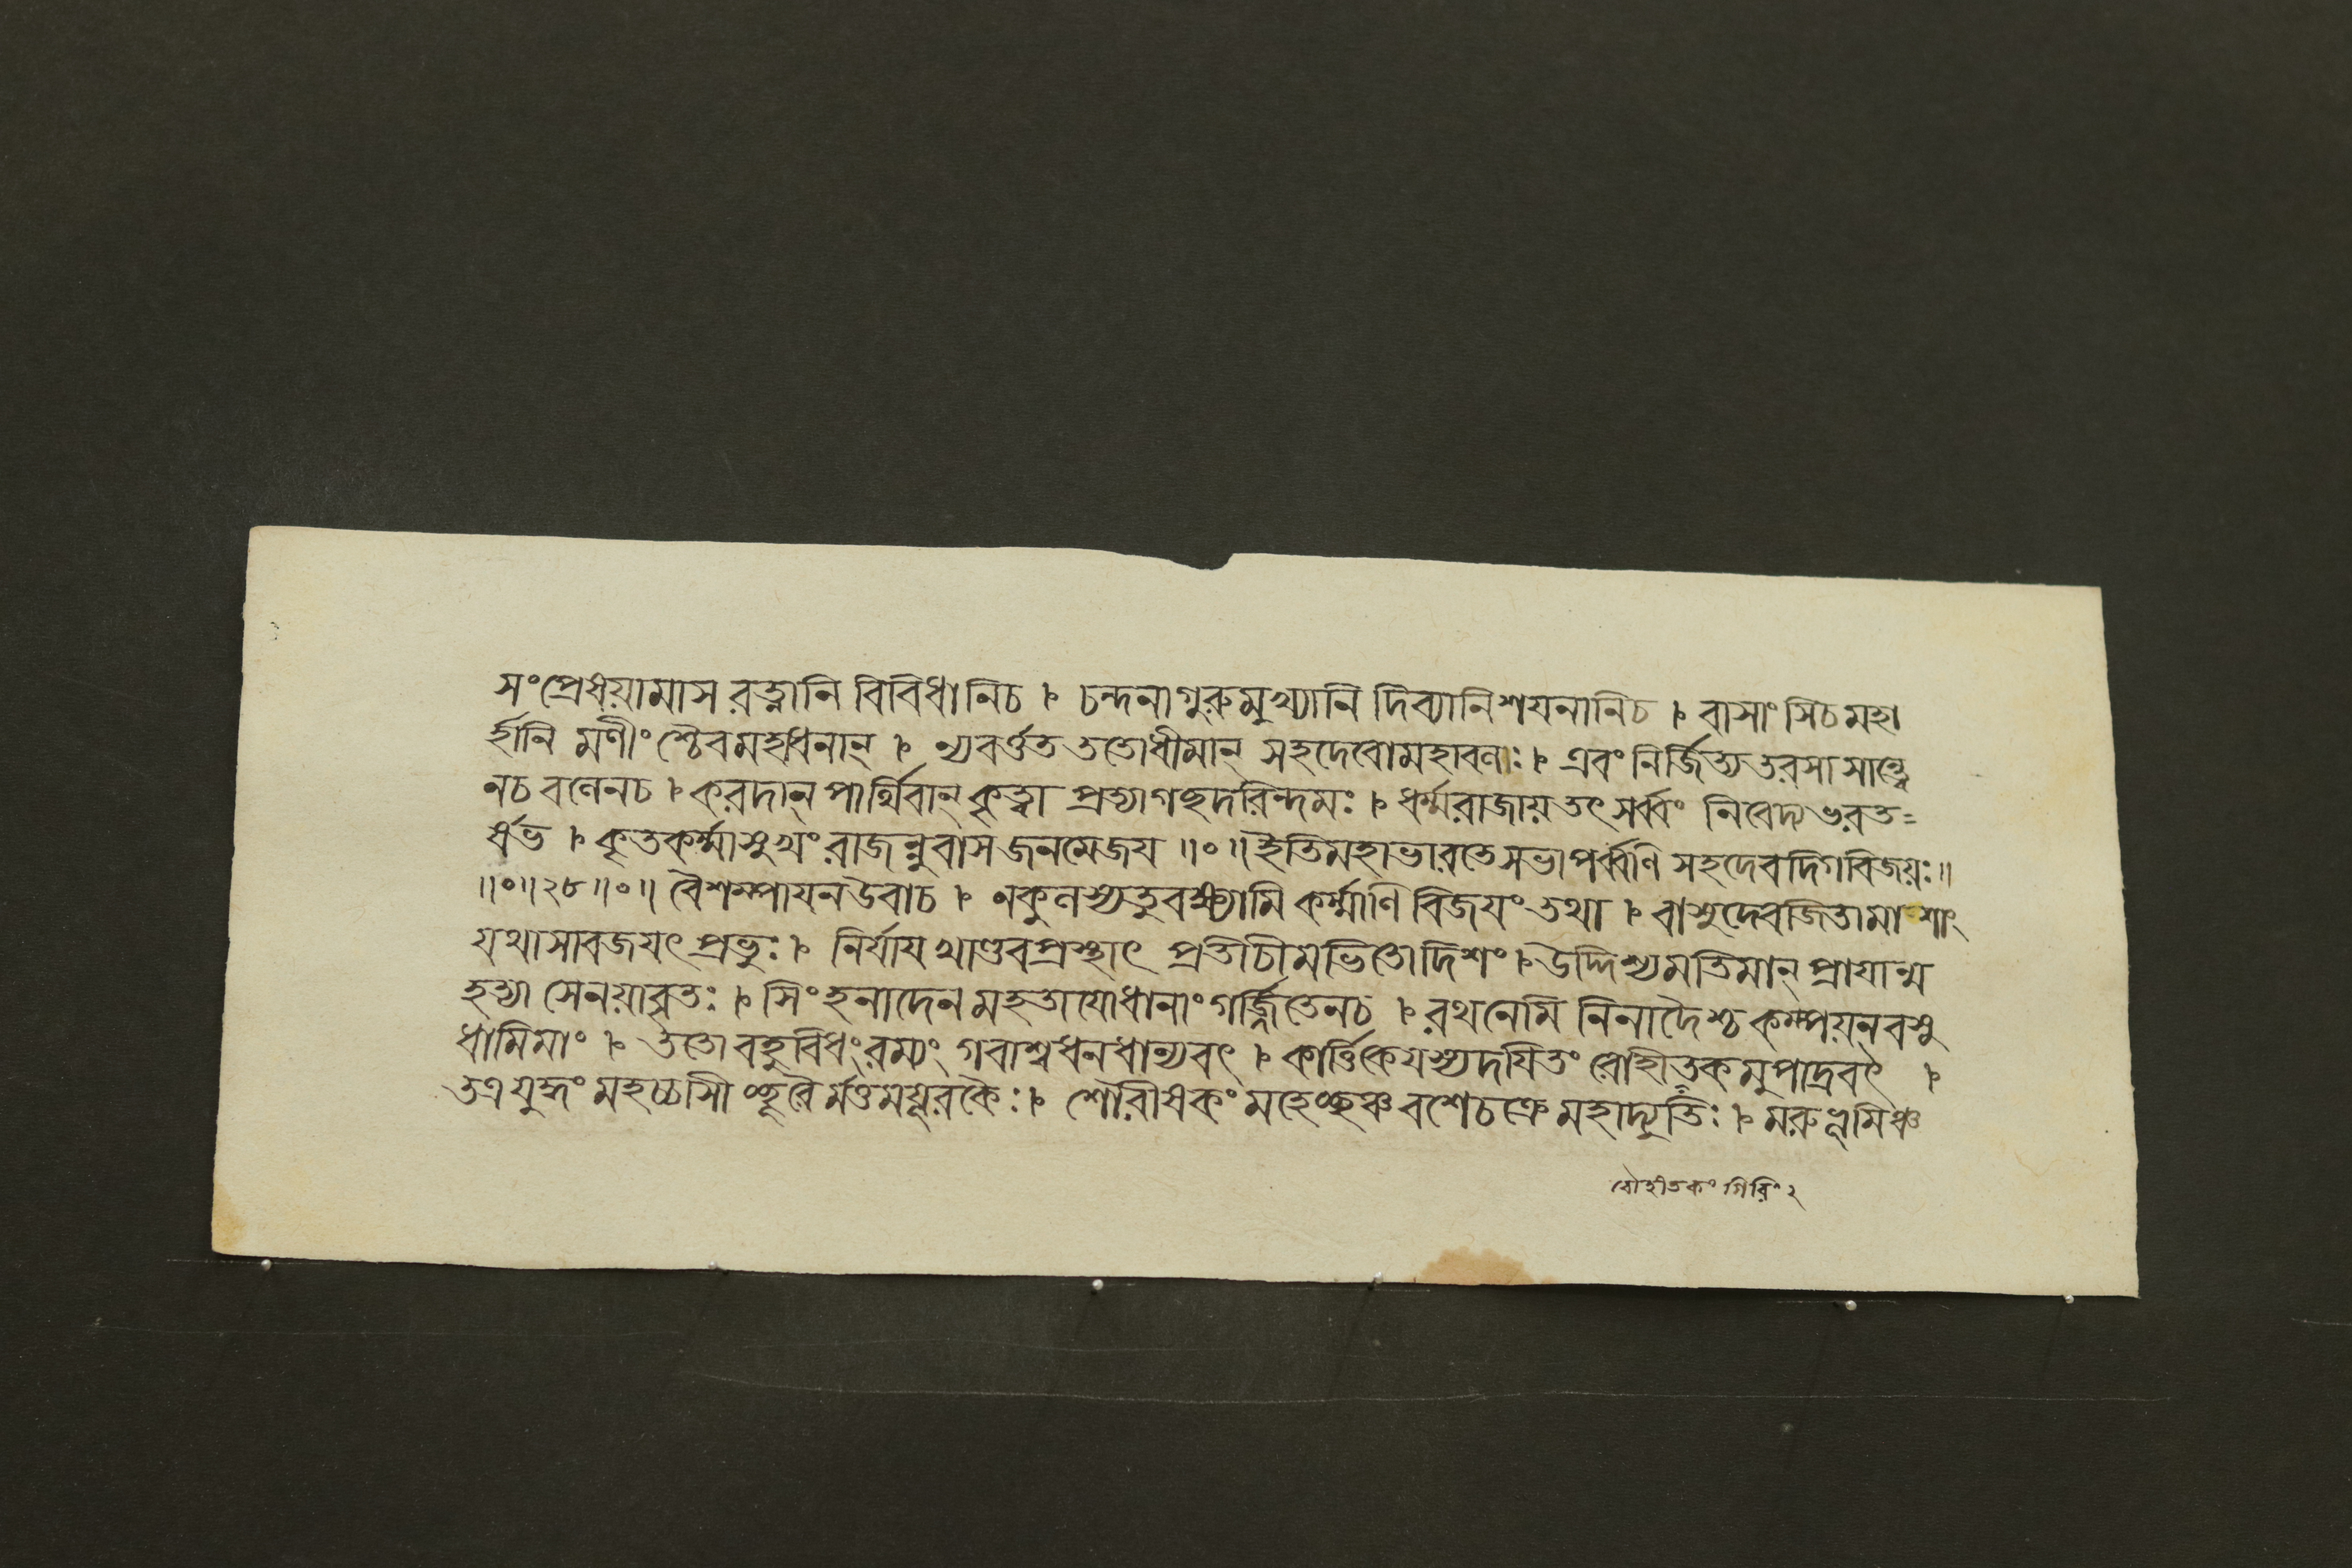 সংপ্রেষয়ামাস রত্নানি বিবিধানিচ । চন্দনাগুরুমুখ্যানি দিব্যানিশয়নানিচ । বাসাংসিচমহা
র্হানি মণীংশ্চৈবমহাধনান্ । ন্যবর্ত্তত ততোধীমান্ সহদেবোমহাবলঃ । এবং নির্জিত্যতরসাসান্ত্বে
নচ বলেনচ । করদান্ পার্থিবান্ কৃত্বা প্রত্যাগছদরিন্দমঃ । ধর্ম্মরাজায়তৎ সর্ব্বং নিবেদ্যভরত=
র্ষভ । কৃতকর্ম্মাসুখংরাজন্নুবাসজনমেজয় ॥०॥ ইতিমহাভারতেসভাপর্ব্বণি সহদেবদিগবিজয়ঃ॥
॥०॥২৮॥०॥ বৈশম্পায়নউবাচ । নকুলস্যতুবক্ষ্যামি কর্ম্মাণি বিজয়ংতথা । বাসুদেবজিতামাশাং
যথাসাবজয়ৎ প্রভুঃ । নির্যায়খাণ্ডবপ্রস্থাৎ প্রতীচীমভিতোদিশং । উদ্দিশ্যমতিমান্ প্রায়ান্ম
হত্যা সেনয়াবৃতঃ । সিংহনাদেনমহতাযোধানাংগর্জ্জিতেনচ । রথনেমি নিনাদৈশ্চকম্পয়ন্বসু
ধামিমাং । ততোবহুবিধংরম্যং গবাশ্বধনধান্যবৎ । কার্ত্তিকেয়স্যদয়িতং রোহীতকমুপাদ্রবৎ ।
তত্রযুদ্ধংমহচ্চাসীচ্ছূরৈর্মত্তময়ূরকৈঃ । শৈরীষকংমহেচ্ছঞ্চবশেচক্রেমহাদ্যুতিঃ । মরুভূমিঞ্চ
রোহীতকংগিরিং২